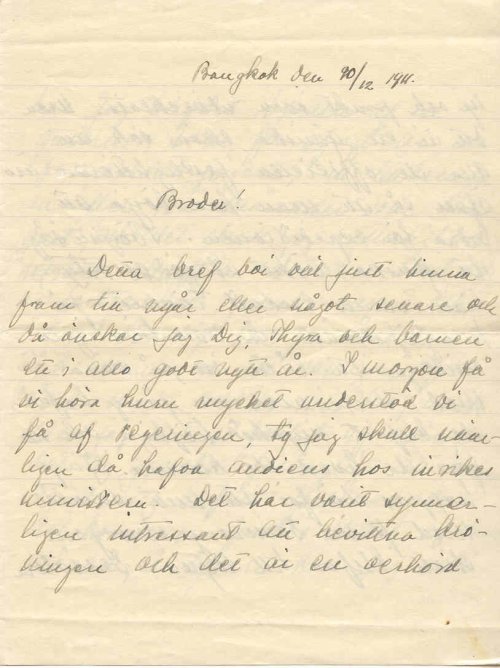 Bangkok den 10/12 1911.
Broder!
Detta bref bör väl just hinna
fram till nyår eller något senare och
då önskar jag Dig, Thyra och barnen
ett i allo godt nytt år. I morgon få
vi höra huru mycket understöd vi
få af regeringen, ty jag skall näm-
ligen då hafva audiens hos inrikes
ministern. Det har varit synner-
ligen intressant att bevittna krö-
ningen och det är en oerhörd